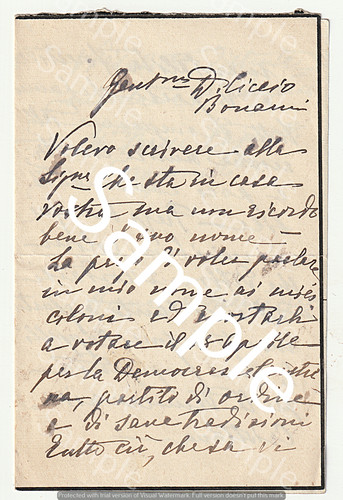 Gent.mo D. Liccio
Bonami
Volevo scrivere alla
Sigra che sta in casa
vostra ma non ricordo
bene il suo nome =
La prego di voler parlare
in mio nome ai miei
coloni ed esortarli
a votare il 18 aprile
per la Democrazia Cristia
na, partito di ordine
e di sane tradizioni
Tutto ciò, che sa Vi
Sample
Protected with trial version of Visual Watermark. Full version doesn't put this mark.